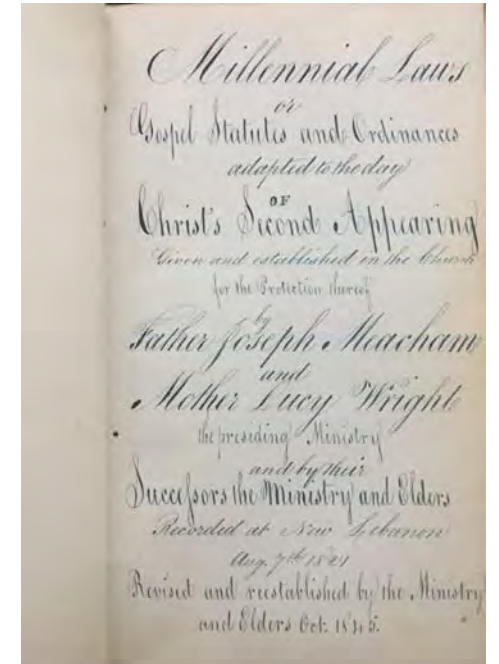 Millennial Laws
or
Gospel Statutes and Ordinances
adapted to the day
OF
Christ's Second Appearing
Given and established in the Church
for the Protection thereof
by
Father Joseph Meacham
and
Mother Lucy Wright
the presiding Ministry
and by their
Successors the Ministry and Elders
Recorded at New Lebanon
Aug. 7th 1821
Revised and reestablished by the Ministry
and Elders Oct. 1845.